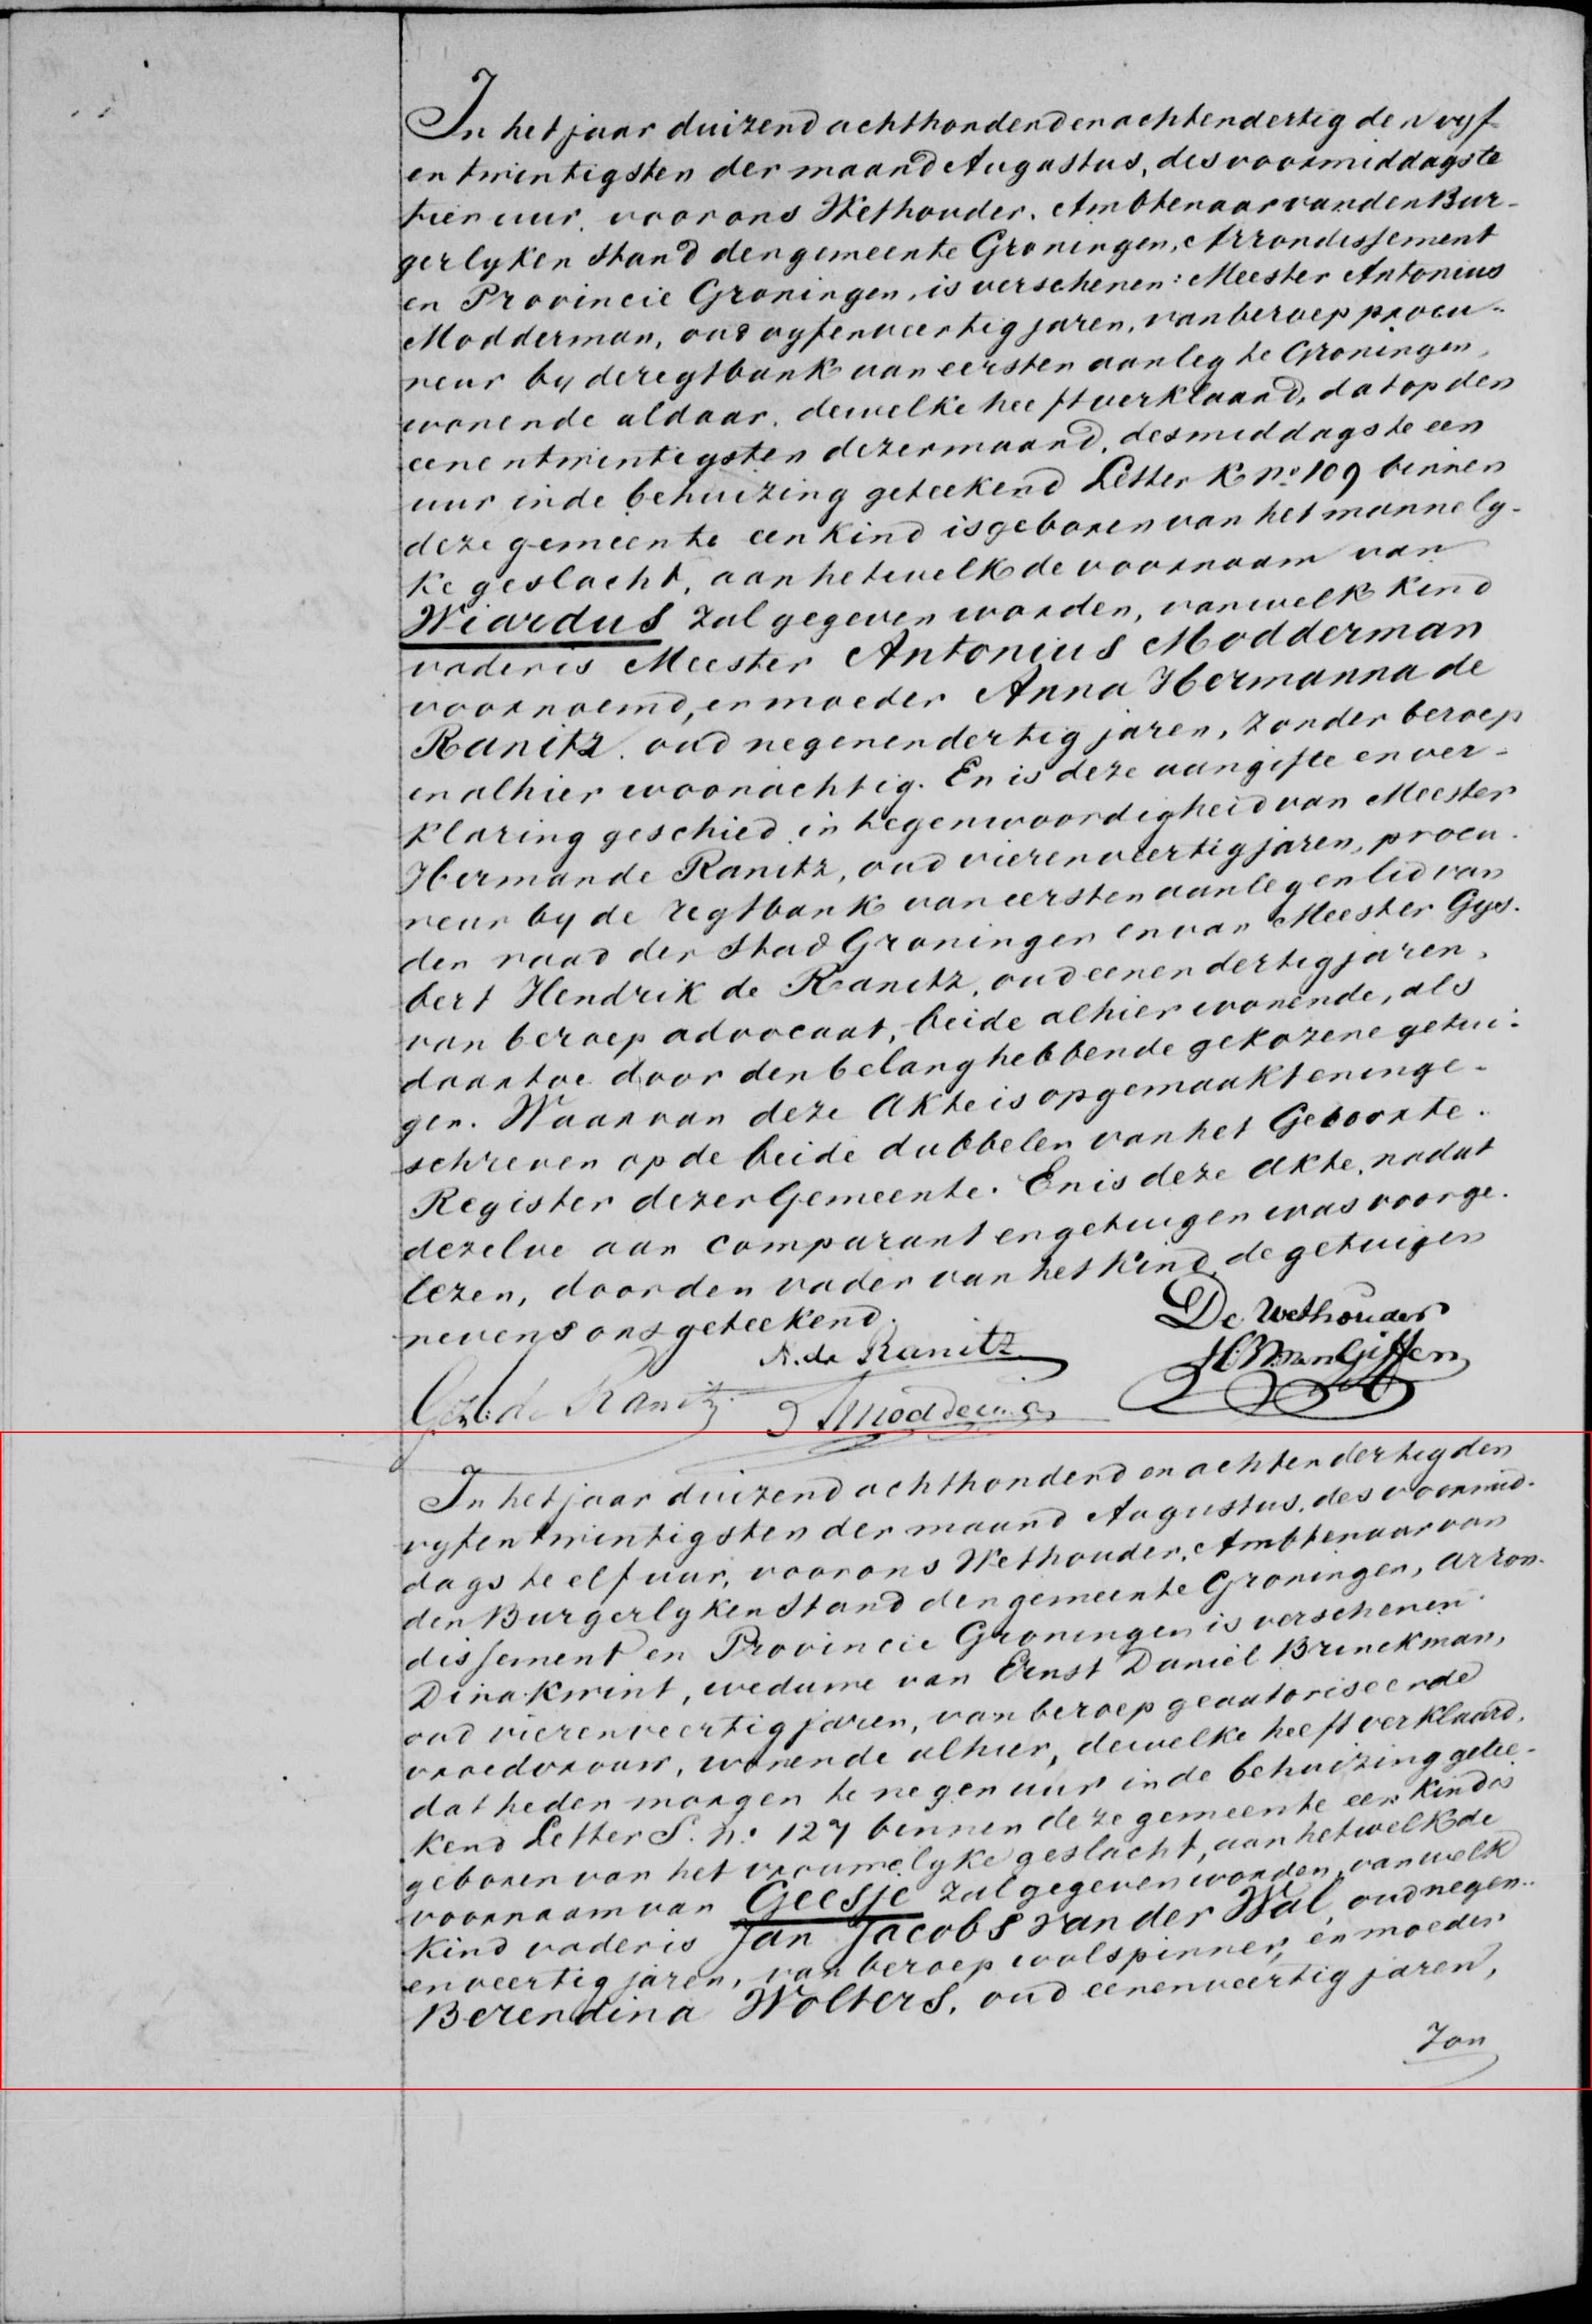 In het jaar duizend achthonderd en achtendertig den vyf-
en twintigsten der maand Augustus, des voormiddags te
tien uur, voor ons Wethouder, Ambtenaar van den Bur-
gerlyken Stand der gemeente Groningen, Arrondissement
en Provincie Groningen, is verschenen: Meester Antonius
Modderman, oud vyfenveertig jaren, van beroep procu-
reur by de regtbank van eersten aanleg te Groningen,
wonende aldaar, dewelke heeft verklaard, dat op den
eenentwintigsten dezer maand, des middags te een
uur in de behuizing geteekend Letter K no. 109 binnen
deze gemeente een kind is geboren van het mannely-
ke geslacht, aan hetwelk de voornaam van
Wiardus zal gegeven worden, van welk kind
vader is Meester Antonius Modderman
voornoemd, en moeder Anna Hermanna de
Ranitz, oud negenendertig jaren, zonder beroep
en alhier woonachtig. En is deze aangifte en ver-
klaring geschied in tegenwoordigheid van Meester
Herman de Ranitz, oud vierenveertig jaren, procu-
reur by de regtbank van eersten aanleg en lid van
den raad der Stad Groningen en van Meester Gys-
bert Hendrik de Ranitz, oud eenendertig jaren,
van beroep advocaat, beide alhier wonende, als
daartoe door den belanghebbende gekozene getui-
gen. Waarvan deze Akte is opgemaakt en inge-
schreven op de beide dubbelen van het Geboorte
Register dezer Gemeente. En is deze Akte, nadat
dezelve aan comparant en getuigen was voorge-
lezen, door den vader van het kind, de getuigen
nevens ons geteekend.
De Wethouder
H. de Ranitz
van Giffen
de Ranitz
A Modderman
In het jaar duizend achthonderd en achtendertig den
vyfentwintigsten der maand Augustus, des voormid-
dags te elf uur, voor ons Wethouder, Ambtenaar van
den Burgerlyken Stand der gemeente Groningen, arron-
dissement en Provincie Groningen is verschenen:
Dina Kwint, weduwe van Ernst Daniël Brinckman,
oud vierenveertig jaren, van beroep geautoriseerde
vroedvrouw, wonende alhier, dewelke heeft verklaard,
dat heden morgen te negen uur in de behuizing getee-
kend Letter S. no. 127 binnen deze gemeente een kind is
geboren van het vrouwelyke geslacht, aan hetwelk de
voornaam van Geesje zal gegeven worden, van welk
kind vader is Jan Jacobs van der Wal, oud negen-
enveertig jaren, van beroep wolspinner, en moeder
Berendina Wolters, oud eenenveertig jaren,
zon